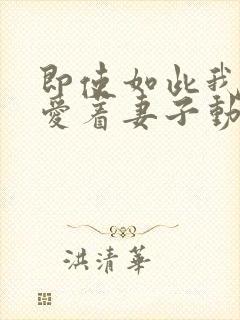 即使如此我
爱着妻子動
洪清華